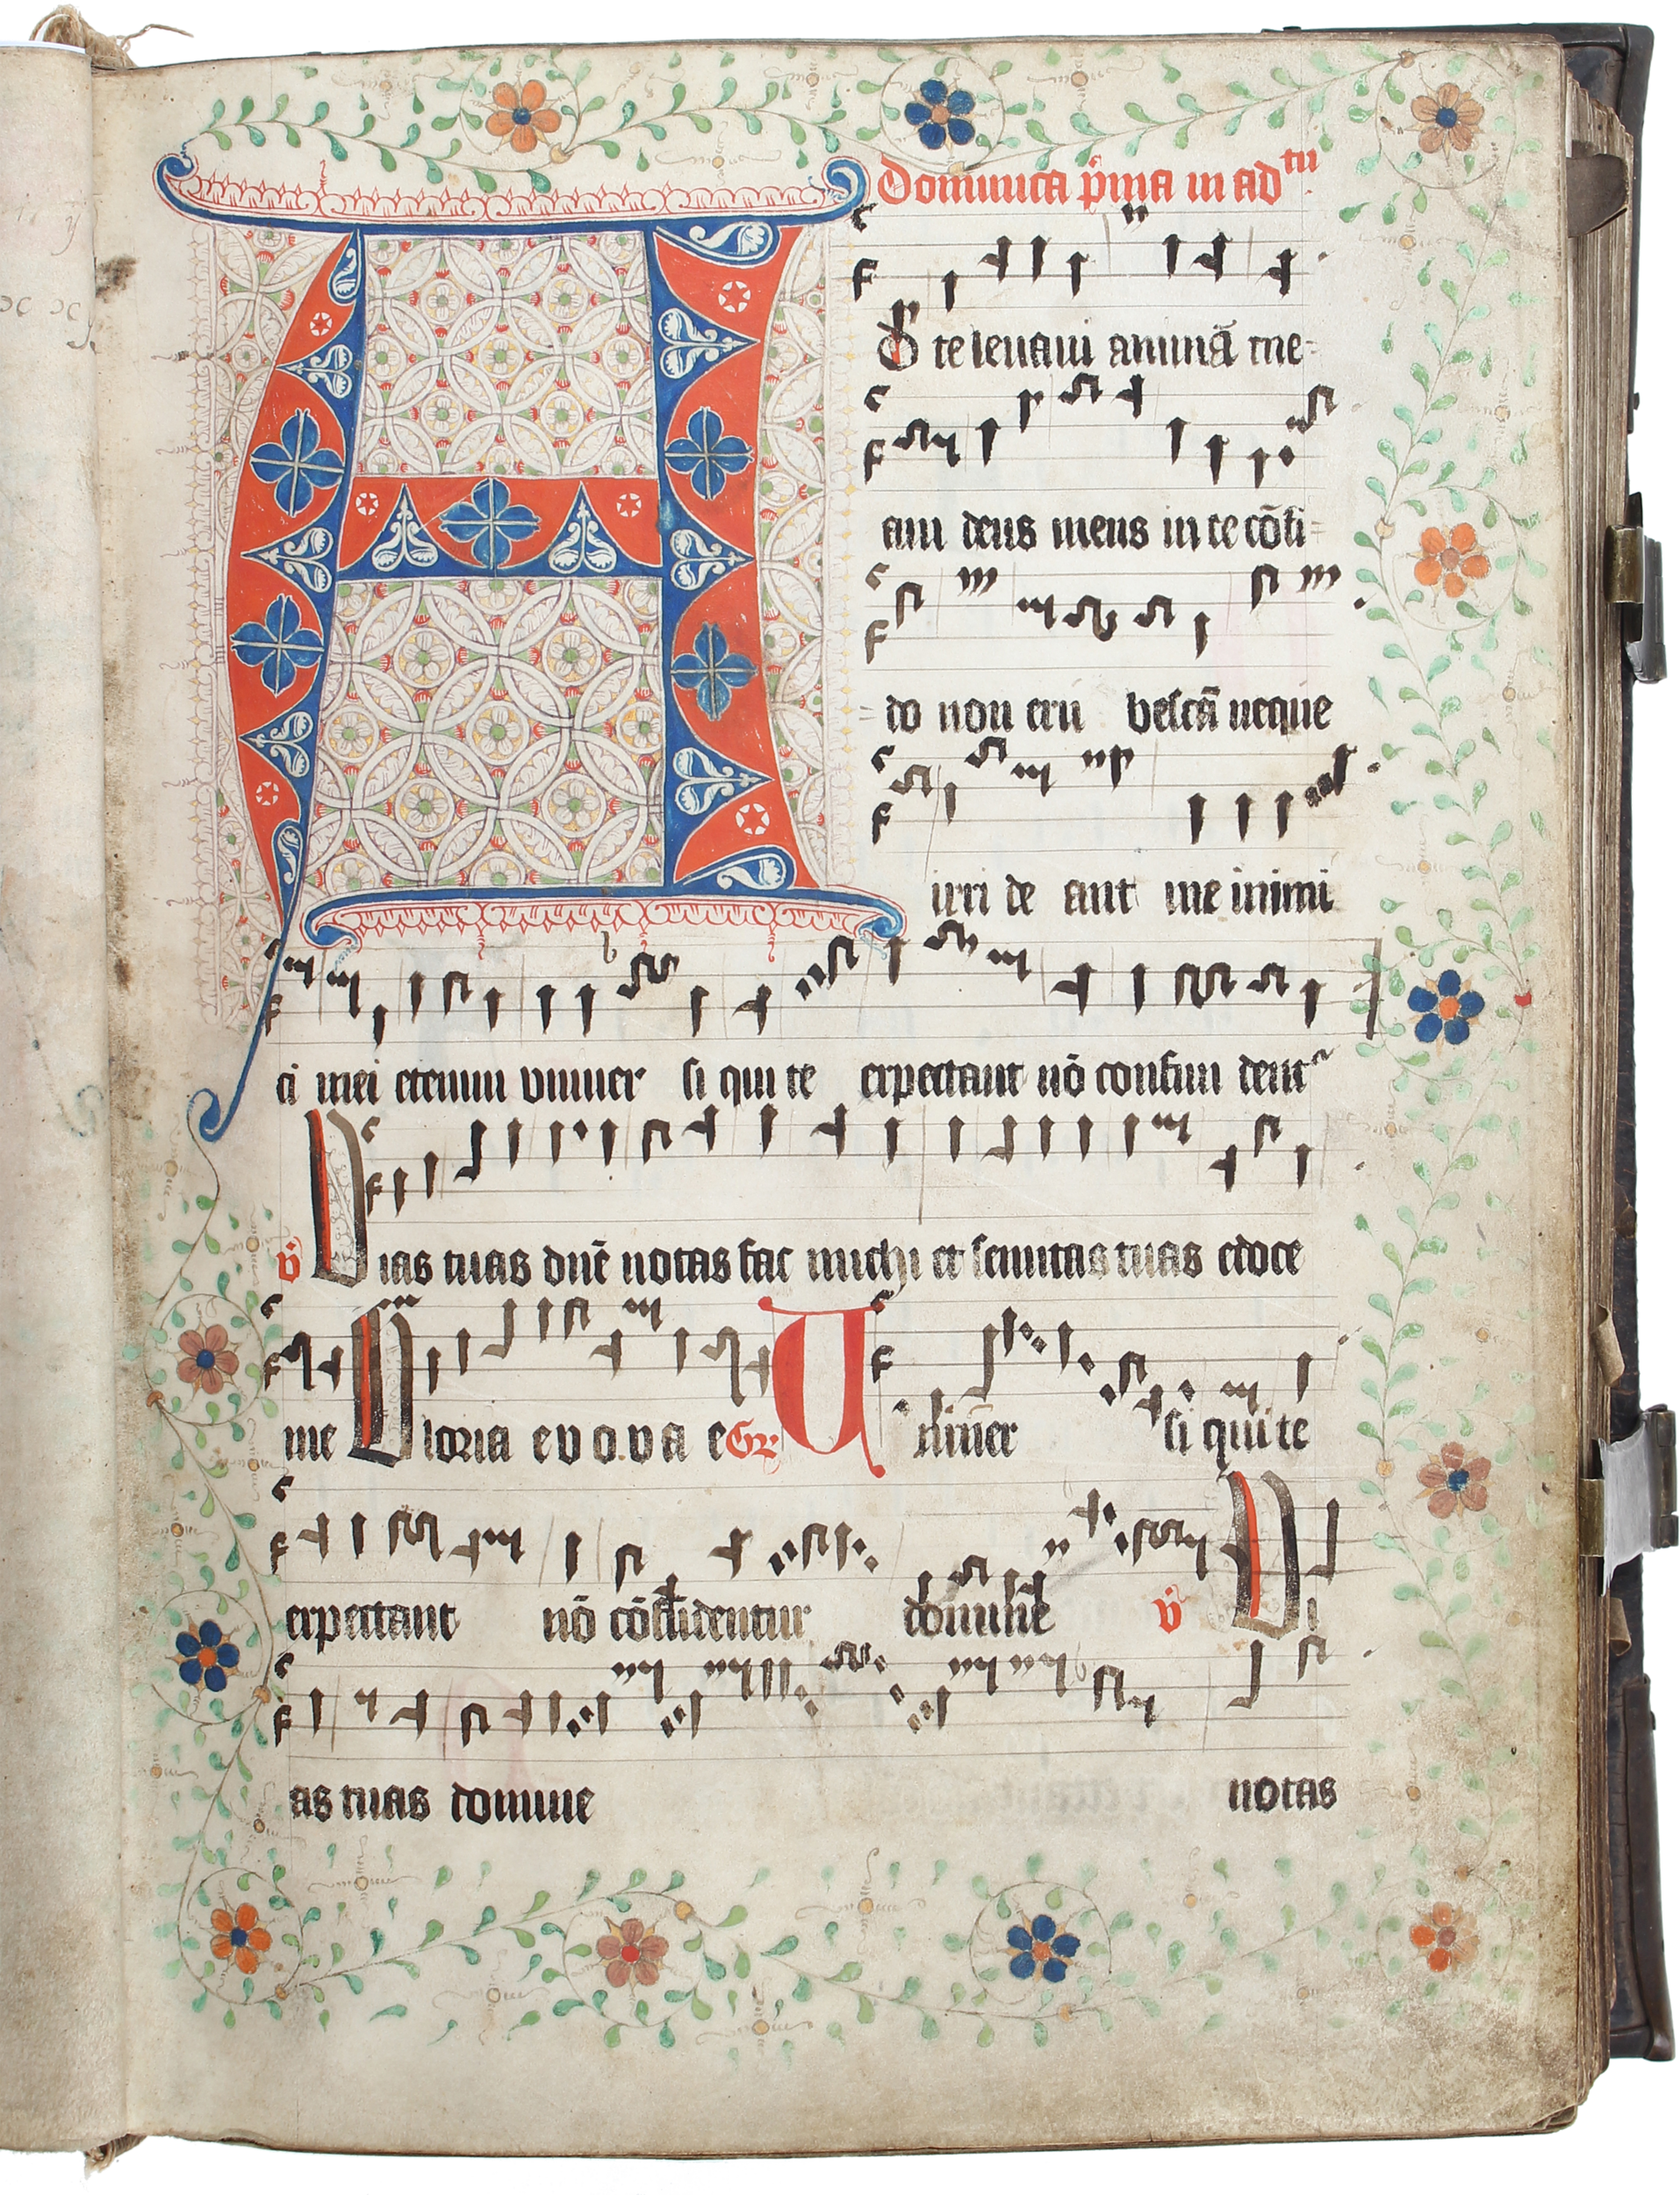 Dominica p̄ma in adtū.
A D te leuaui animā me=
am deus meus in te cōfi=
do non eru bescā neque
irri de ant me inimi
ci mei etenim vniuer si qui te expectant nō confun dentr
v̄ Vias tuas dn̄e notas fac michi et semitas tuas edoce
me Gloria e v o.v a e Gr Uniūer si qui te
expectant nō cōfūdentur domine v̄ Vi
as tuas domine notas